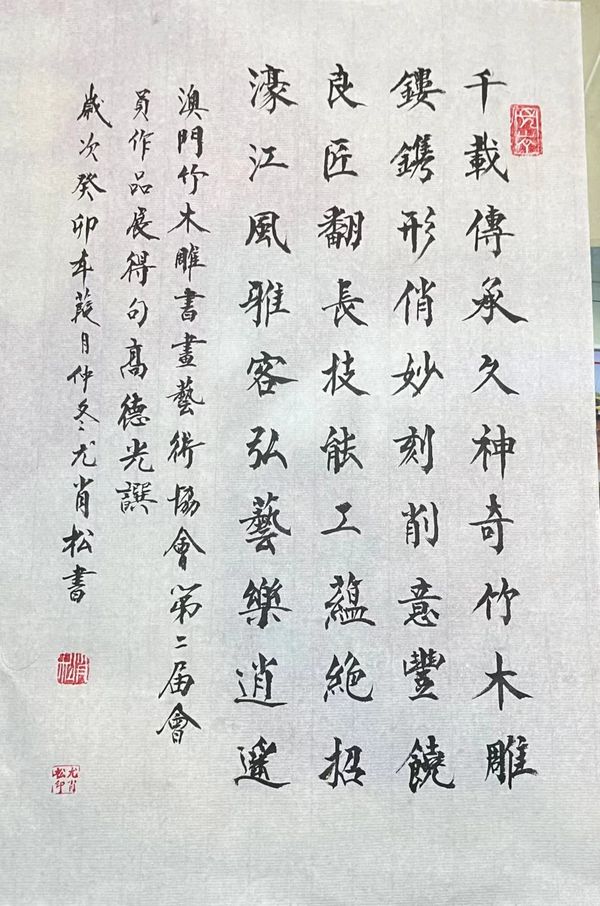 千載傳承久神奇竹木雕
鏤鐫形俏妙刻削意豐饒
良匠翻長技能工蘊絕招
濠江風雅客弘藝樂逍遙
澳門竹木雕書畫藝術協會第二届會
員作品展得句高德光譔
歲次癸卯年葭月仲冬尤肖松書
尤肖
松印